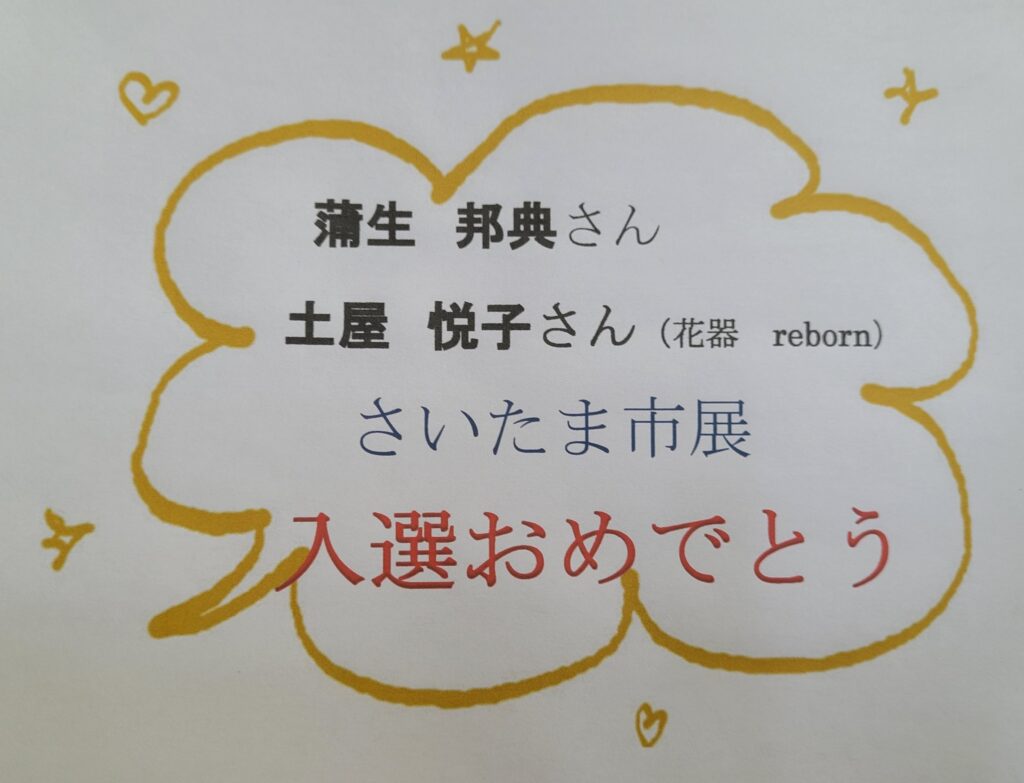 蒲生　邦典さん
土屋　悦子さん（花器　reborn）
さいたま市展
入選おめでとう